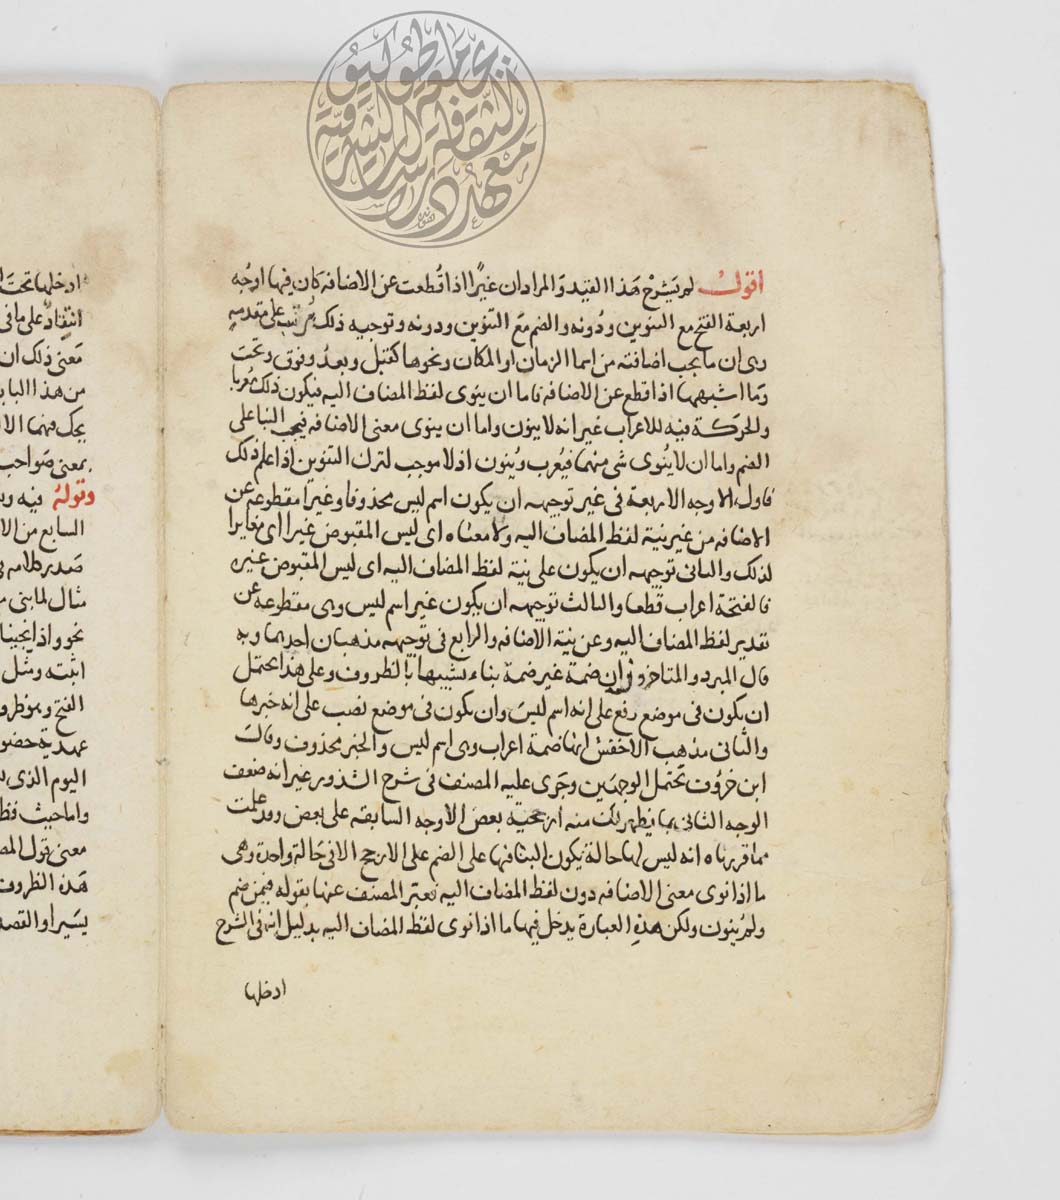 اقول لم يشرح هذا القيد والمراد ان غيرًا اذا قُطعت عن الاضافه كان فيها اوجه
اربعة الفتح مع التنوين ودُونه والضم مع التنوين ودونه وتوجيه ذلك مُرتب على مقدمه
وهى ان ما يجب اضافته من اسما الزمان او المكان ونحوها كقبل وبعدُ وفوق وتحت
وما اشبهها اذا قطع عن الاضافه فاما ان ينوى لفظ المضاف اليه فيكون ذلك معربا
والحركة فيه للاعراب غير انه لا ينون واما ان ينوى معنى الاضافه فيجب البنا على
الضم واما ان لا ينُوى شى منهما فيُعرب ويُنون اذ لا موجب لترك التنوين اذا علم ذلك
فاول الاوجه الاربعة فى غير توجيهه ان يكون اسم ليس محذوفا وغيرا مقطوعه عن
الاضافه من غير نية لفظ المضاف اليه ولا معناه اى ليس المقبوض غيرا اى مغايرا
لذلك والثانى توجيهه ان يكون على نية لفظ المضاف اليه اى ليس المقبوض غيره
فالفتحة اعراب قطعا والثالث توجيهه ان يكون غير اسم ليس وهى مقطوعه عن
تقدير لفظ المضاف اليه وعن نية الاضافه والرابع فى توجيهه مذهبان احدهما وبه
قال المبرد والمتاخرون ان ضمة غير ضمة بناء تشبيها بالظروف وعلى هذا يحتمل
ان يكون فى موضع رفع على انه اسم ليس وان يكون فى موضع نصب على انه خبرها
والثانى مذهب الاخفش انها ضمة اعراب وهى اسم ليس والخبر محذوف وقال
ابن خروف تحتمل الوجهين وجرى عليه المصنف فى شرح الشذور غير انه ضعف
الوجه الثانى بما يظهر لك منه ارجحية بعض الاوجه السابقه على بعض وقد علمت
مما قررناه انه ليس لها حالة يكون البنا فيها على الضم على الارجح الا فى حالة واحدة وهى
ما اذا نوى معنى الاضافه دون لفظ المضاف اليه فعبر المصنف عنها بقوله فيمن ضم
ولم ينون ولكن هذه العبارة يدخل فيها ما اذا نوى لفظ المضاف اليه بدليل انه فى الشرح
ادخلها
ادخلها تحت
انتقاد على ما فى
معنى ذلك ان
من هذا الباب
يجك فهما الا
بمعنى صواحب
وقوله فيه
السابع من الا
صدر كلامه
مثال لما بنى
نحو واذ انجينا
اثبته ومثل
الفتح وهو ظر
عهدية حضو
اليوم الذى
واما حيث فظ
معنى قول المص
هذه الظروف
يسيرا والقصد